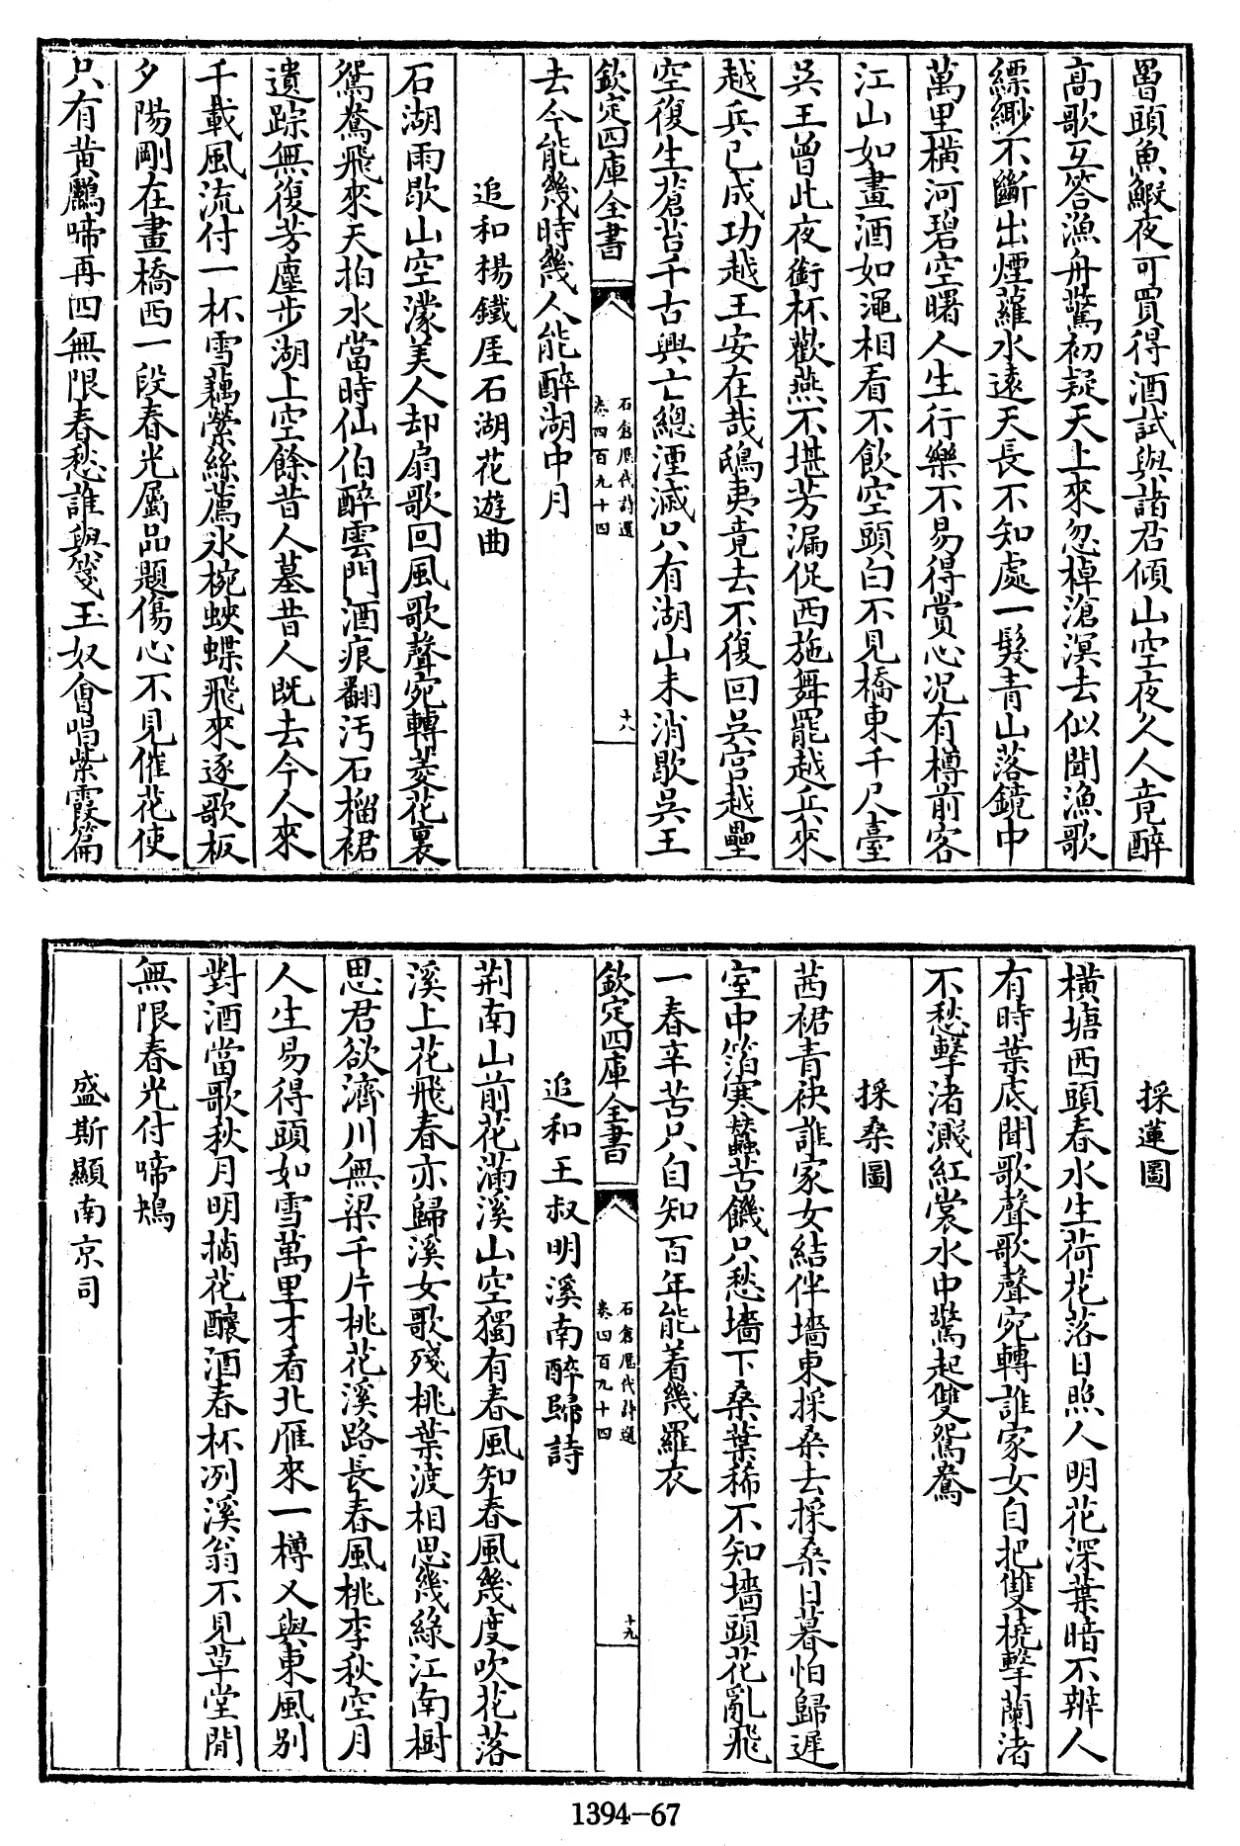 罾頭魚鰕夜可買得酒試與諸君傾山空夜久人竟醉
高歌互答漁舟驚初疑天上來忽棹滄溟去似聞漁歌
縹緲不斷出煙蘿水遠天長不知處一髮青山落鏡中
萬里橫河碧空曙人生行樂不易得賞心况有樽前客
江山如畫酒如澠相看不飲空頭白不見橋東千尺臺
吳王曾此夜銜杯歡燕不堪芳漏促西施舞罷越兵來
越兵已成功越王安在哉鴟夷竟去不復回吳宮越壘
空復生蒼苔千古興亡總湮滅只有湖山未消歇吳王
欽定四庫全書
石倉歷代詩選
卷四百九十四
十八
去今能幾時幾人能醉湖中月
追和楊鐵厓石湖花遊曲
石湖雨歇山空濛美人却扇歌回風歌聲宛轉菱花裏
鴛鴦飛來天拍水當時仙伯醉雲門酒痕翻汚石榴裙
遺踪無復芳塵步湖上空餘昔人墓昔人既去今人來
千載風流付一杯雪藕縈絲薦氷椀蛺蝶飛來逐歌板
夕陽剛在畫橋西一段春光屬品題傷心不見催花使
只有黄鸝啼再四無限春愁誰與箋玉奴會唱紫霞篇
採蓮圖
橫塘西頭春水生荷花落日照人明花深葉暗不辨人
有時葉底聞歌聲歌聲宛轉誰家女自把雙橈擊蘭渚
不愁擊渚濺紅裳水中驚起雙鴛鴦
採桑圖
茜裙青袂誰家女結伴墻東採桑去採桑日暮怕歸遲
室中箔寒蠶苦饑只愁墻下桑葉稀不知墻頭花亂飛
一春辛苦只自知百年能着幾羅衣
欽定四庫全書
石倉歷代詩選
卷四百九十四
十九
追和王叔明溪南醉歸詩
荆南山前花滿溪山空獨有春風知春風幾度吹花落
溪上花飛春亦歸溪女歌殘桃葉渡相思幾綠江南樹
思君欲濟川無梁千片桃花溪路長春風桃李秋空月
人生易得頭如雪萬里才看北雁來一樽又與東風别
對酒當歌秋月明摘花釀酒春杯冽溪翁不見草堂閒
無限春光付啼鴂
盛斯顯南京司
1394-67